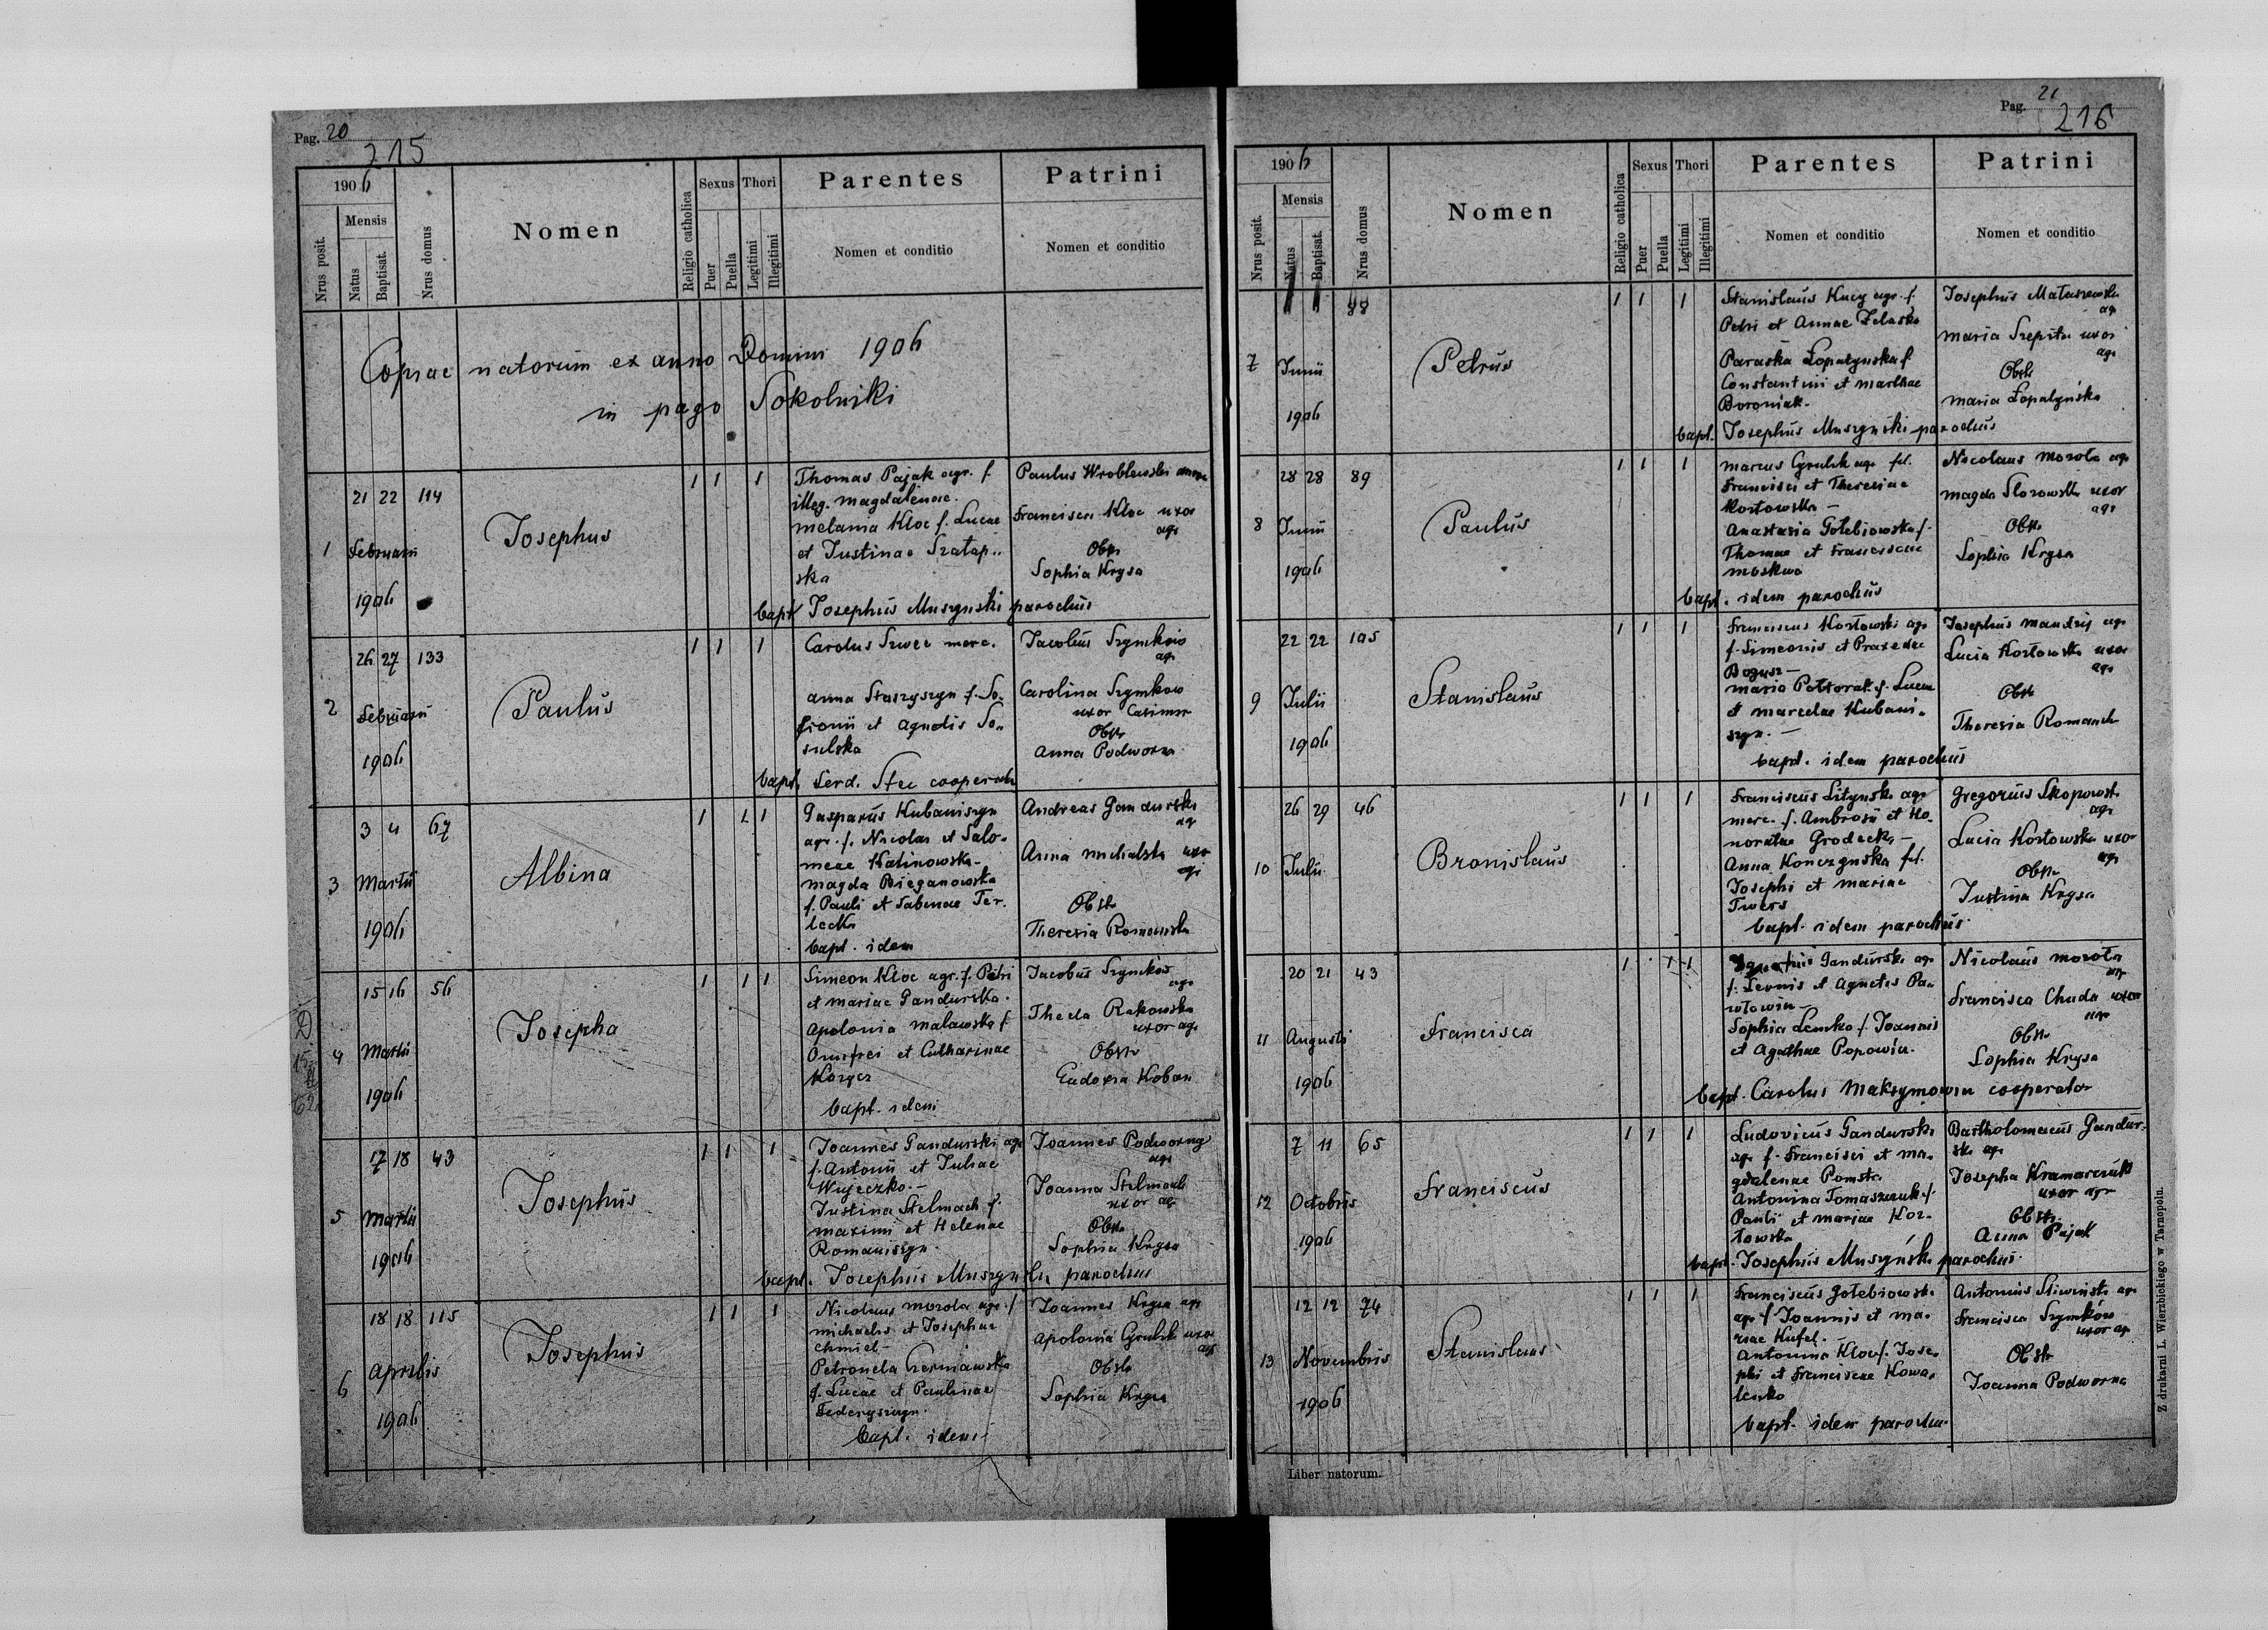 Pag. 20
215
1906
Nrus posit.
Mensis
Natus
Baptisat.
Nrus domus
Nomen
Religio catholica
Sexus
Puer
Puella
Thori
Legitimi
Illegitimi
Parentes
Nomen et conditio
Patrini
Nomen et conditio
Copiae natorum ex anno Domini 1906
in pago Sokolniki
1
21 22 114
Februarii
1906
Josephus
1 1 1
Thomas Pająk agr. f.
illeg. Magdalenae.
Melania Kloc f. Lucae
et Justinae
ska
Paulus Wroblewski
Francisca Kloc uxor
agr
Obstr
Sophia Krysa
bapt Josephus Muszynski parochus
2
26 27 133
Februarii
1906
Paulus
1 1 1
Carolus Szwec merc.
Anna Staszyszyn f. So-
fronii et Agnetis So-
sulska
Jacobus Szymków
agr
Carolina Szymkow
uxor Casimir
Obstr
Anna Podworna
bapt. Ferd. Stec cooperator
3
3 4 67
Martii
1906
Albina
1 1 1
Gasparus Kubaniszyn
agr. f. Nicolai et Salo-
meae Kalinowska -
Magda Bieganowska
f. Pauli et Sabinae Ter-
lecka
bapt. idem
Andreas Gandurski
agr
Anna Michalska uxor
agr
Obstr
Theresia Romanska
4
15 16 56
Martii
1906
Josepha
1 1 1
Simeon Kloc agr. f. Petri
et Mariae Gandurska.
Apolonia Malawska f.
Onufrei et Catharinae
Korycz
bapt. idem
Jacobus Szymków
agr
Thecla Rakowska
uxor agr
Obstr
Eudoxia Koban
5
17 18 43
Martii
1906
Josephus
1 1 1
Joannes Gandurski agr
f. Antonii et Juliae
Wujeczko. -
Justina Stelmach f.
Maximi et Helenae
Romaniszyn.
Joannes Podworny
agr
Joanna Stelmach
uxor agr
Obstr
Sophia Krysa
bapt. Josephus Muszynski parochus
6
18 18 115
Aprilis
1906
Josephus
1 1 1
Nicolaus Mozola agr. f.
Michaelis et Josephae
Chmiel -
Petronela Czerniawska
f. Lucae et Paulinae
Federyszyn.
bapt. idem
Joannes Krysa agr
Apolonia Grulik uxor
agr
Obstr
Sophia Krysa
Pag. 21
216
1906
Nrus posit.
Mensis
Natus
Baptisat.
Nrus domus
Nomen
Religio catholica
Sexus
Puer
Puella
Thori
Legitimi
Illegitimi
Parentes
Nomen et conditio
Patrini
Nomen et conditio
7
88
Junii
1906
Petrus
1 1 1
Stanislaus Kucy agr. f.
Petri et Annae Zelasko
Paraska Łopatynska f.
Constantini et Marthae
Boroniak.
Josephus Mataszewski
agr
Maria Szepita uxor
agr
Obstr
Maria Łopatyńska
bapt. Josephus Muszyński parochus
8
28 28 89
Junii
1906
Paulus
1 1 1
Marcus Grulik agr fil.
Francisci et Theresiae
Kozłowska -
Anastasia Gołebiowska f.
Thomae et Franciscae
Moskwa
Nicolaus Mozola agr
Magda uxor
agr
Obstr
Sophia Krysa
bapt. idem parochus
9
22 22 105
Julii
1906
Stanislaus
1 1 1
Franciscus Kozłowski agr
f. Simeonis et Praxedae
Bogusz -
Maria Półtorak f. Lucae
et Marcelae Kubani-
szyn. -
bapt. idem parochus
Josephus Mandzij agr
Lucia Kozłowska uxor
agr
Obstr
Theresia Romanska
10
26 29 46
Julii
Bronislaus
1 1 1
Franciscus Litynski agr
merc. f. Ambrosii et Ho-
noratae Grodecka -
Anna Konczynska fil.
Josephi et Mariae
Twers
bapt. idem parochus.
Gregorius Skopowski
agr.
Lucia Kozłowska uxor
agr
Obstr
Justina Krysa
11
20 21 43
Augusti
1906
Francisca
1 1 1
Ignatius Gandurski agr
f. Leonis et Agnetis Pa-
włowicz -
Sophia Lemko f. Joannis
et Agathae Popowicz.
Nicolaus Mozoła
agr
Francisca Chuda uxor
agr
Obstr
Sophia Krysa
bapt. Carolus Maksymowicz cooperator
12
7 11 65
Octobris
1906
Franciscus
1 1 1
Ludovicus Gandurski
agr f. Francisci et Ma-
gdalenae Pomsta
Antonina Tomaszczuk f.
Pauli et Mariae Koz-
łowska
Bartholomaeus Gandur-
ski agr
Josepha Kramarczuk
uxor agr
Obstr.
Anna Pająk
bapt. Josephus Muszyński parochus.
13
12 12 74
Novembris
1906
Stanislaus
1 1 1
Franciscus Gołebiowski
agr f. Joannis et Ma-
riae Kufel.
Antonina Kloc f. Jose-
phi et Franciscae Kowa-
lenko
bapt. idem parochus
Antonius Sliwinski agr
Francisca Szymków
uxor agr
Obstr
Joanna Podworna
Liber natorum.
Z drukarni L. Wierzbickiego w Tarnopolu.